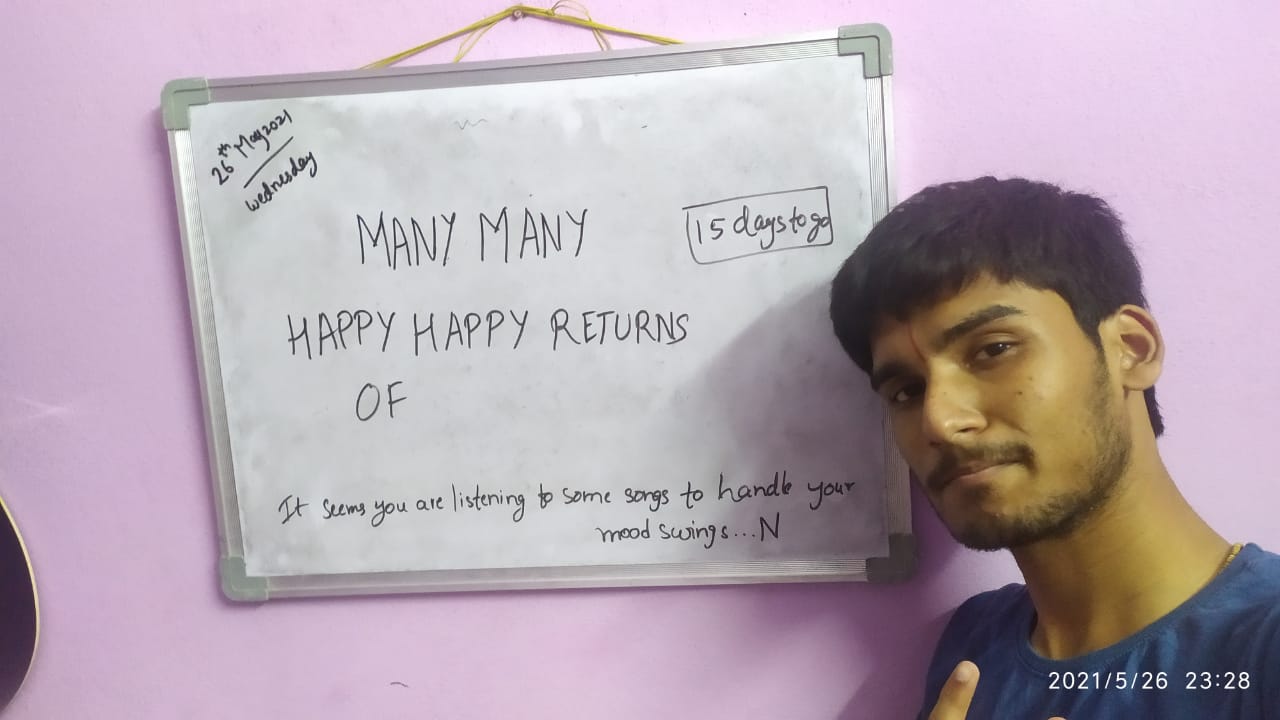 26th May 2021
wednesday
MANY MANY
15 days to go
HAPPY HAPPY RETURNS
OF
It seems you are listening to some songs to handle your
mood swings...N
2021/5/26 23:28